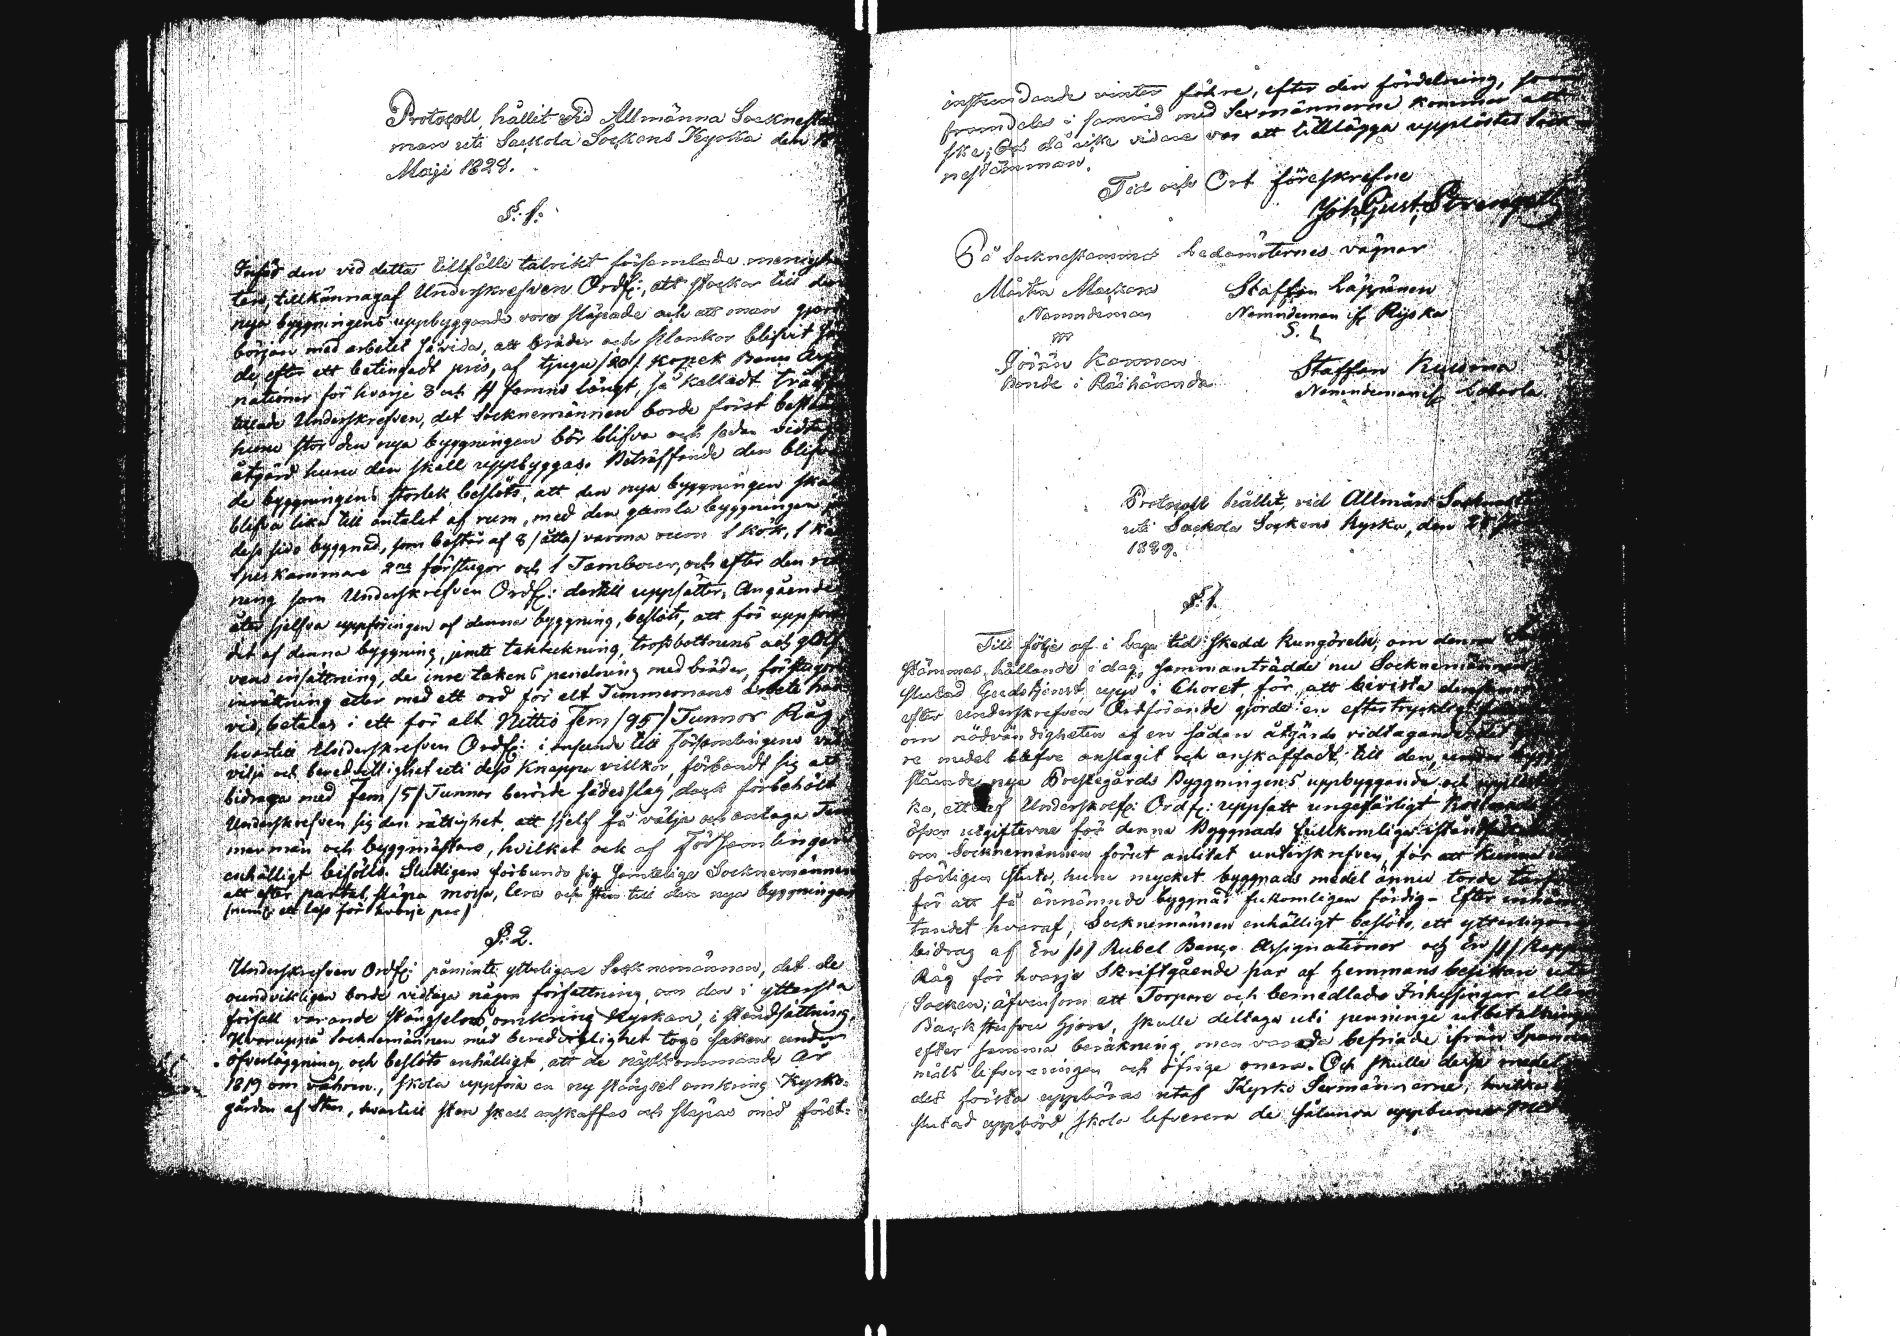 Protocoll, hållit vid Allmänna Sockneste
man uti Sackola Sockens Kyrka den 18
Maji 1828.
§. 1.
Inför den vid detta tillfälle talrikt församlade menighe
ten, tillkännagaf Underskrefven Ordf:, att stockar till den
nya byggningens uppbyggande voro släpade och att man gjort
början med arbetet såvida, att bräder och plankor blifvit
de, efter ett betingadt pris, af tjugu /20/ kopek Banco Assig
nationer för hvarje 3 och 4 famns långt, så kalladt
Underskrefven, det Socknemännen borde först beslu
huru stor den nya byggningen bör blifva och sedan vidtaga
åtgärd huru den skall uppbyggas. Beträffande den blifvan
de byggningens storlek beslöts, att den nya byggningen skall
blifva lika till antalet af rum, med den gamla byggningen
dess sido byggnad, som består af 8 /åtta/ varma rum 1 kök, 1
spis kammare 2ne förstugor och 1 Tambour, och efter den rit
ning som Underskrefven Ordf: dertill uppsätter; Angående
åter sjelfva uppföringen af denna byggning, beslöts, att för uppföran
det af denna byggning, jemte taktäckning, trossbottnens och golf
vens insättning, de inre takens penelning med bräder, förstugors
inrättning eller med ett ord för alt Timmermans arbete här
vid, betalas i ett för alt Nittio fem /95/ Tunnor Råg,
hvartill Underskrefven Ordf: i anseende till Församlingens väl
vilja och beredvillighet uti dess knappa villkor, förbandt sig att
bidraga med Fem /5/ Tunnor berörde sädesslag, dock förbehölt
Underskrefven sig den rättighet, att sjelf få välja och antaga Tim
mermän och byggmästare, hvilket ock af Församlingen
enhälligt biföllts. Slutligen förbundo sig Samtelige Socknemännen
att efter partal släpa mossa, lera och sten till den nya byggningen
/neml: ett lass för hvarje par/
§. 2.
Underskrefven Ordf: påminte ytterligare Socknemännen, det de
oundvikligen borde vidtaga någon författning, om den i yttersta
förfall varande stängseln omkring Kyrkan, i ståndsättning.
Hvaruppå Socknemännen med beredvillighet togo saken under
öfverläggning, och beslöts enhälligt, att de nästkommande År
1819 om våhren, skola uppföra en ny stängsel omkring Kyrko-
gården af Sten, hvartill sten skall anskaffas och släpas med först-
instundande vinter föhre, efter den fördelning, som
framdeles i samråd med Sexmännerne kommer att
ske; Och då icke vidare var att tilllägga upplöstes Sock-
nestämman.
Tid och Ort föreskrefne
Joh: Gust: Strengell
På Sockenstämmo Ledamöternes vägnar
Mårten Mackon
Nämndeman
Staffan Läppänen
Nämndeman if Riska
S. L
Jöran Karman
Bonde i Räihäranda
Staffan Kuisma
Nämndeman if Loborla
Protocoll hållit, vid Allmän Socknest
uti Sackola Sockens Kyrka, den 28
1829.
§. 1.
Till följe af i Laga tid skedd kungörelse, om denna
Stämmas hållande i dag, sammanträdde nu Socknemännen
slutad Gudstjenst, uppe i Choret, för att bivista densamma
efter underskrefven Ordförande gjorde en eftertrycklig
om nödvändigheten af en sådan åtgärds vidtagande
re medel blefve anslagit och anskaffadt till den, under bygg
stående, nya Prestegårds Byggningens uppbyggande, och upplä
ka, ett af Underskrefv: Ordf: uppsatt ungefärligt Kostnads
öfver utgifterna för denna Byggnads fullkomliga iståndsä
om Socknemännen förut anlitat underskrefven, för att kunna
färligen sluta, huru mycket byggnads medel ännu torde
för att få ännämnde byggnad fukomligen färdig. Efter inhäm
tandet hvaraf, Socknemännen enhälligt beslöts, ett ytterligare
bidrag af En /1/ Rubel Banco Assignationer och En /1/ Kappe
Råg för hvarje Skriftgående par af Hemmans besittare uti
Socken; äfvensom att Torpare och bemedlade Inhysingar eller
Backstufvu Hjon, skulle deltaga uti penninge utbetalningen
efter samma beräkning men vara befriade ifrån Spanne
måls lefvereringen och öfrige onera. Och skulle dessa medel
det första uppbäras utaf Kyrko Sexmännerne, hvilka
slutad uppbörd, skola lefverera de sålunda uppburne